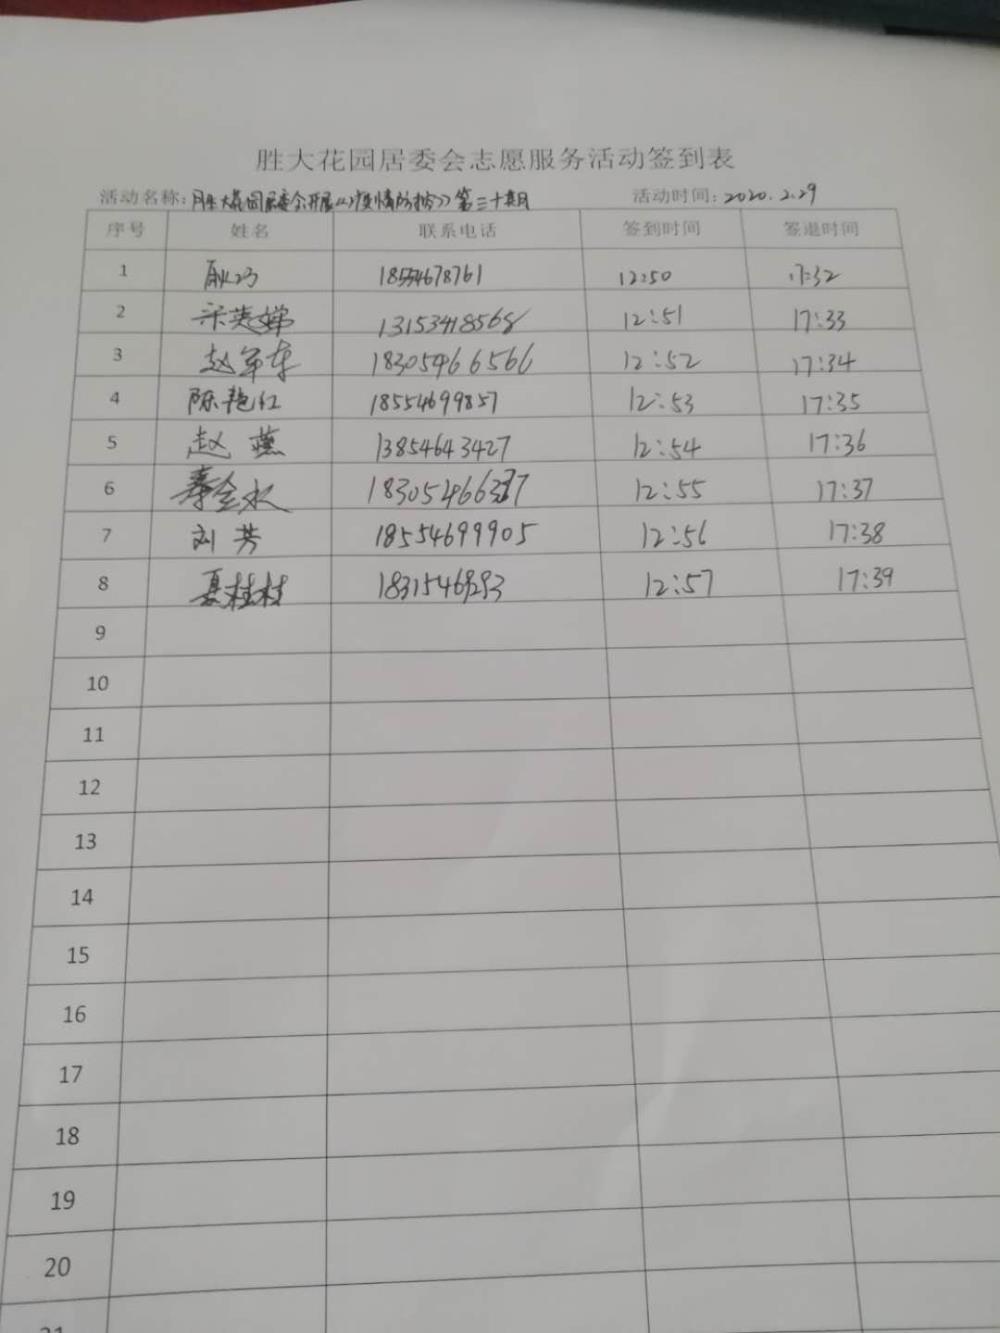 胜大花园居委会志愿服务活动签到表
活动名称: 胜大花园居委会开展《疫情防控》第三十期 活动时间: 2020.2.29
序号 姓名 联系电话 签到时间 签退时间
1 12:50 17:32
2 宋英婵 13153418568 12:51 17:33
3 赵军车 18305466566 12:52 17:34
4 陈艳红 18554699857 12:53 17:35
5 赵燕 13854643427 12:54 17:36
6 秦金水 12:55 17:37
7 刘芳 18554699905 12:56 17:38
8 夏桂枝 12:57 17:39
9
10
11
12
13
14
15
16
17
18
19
20
21